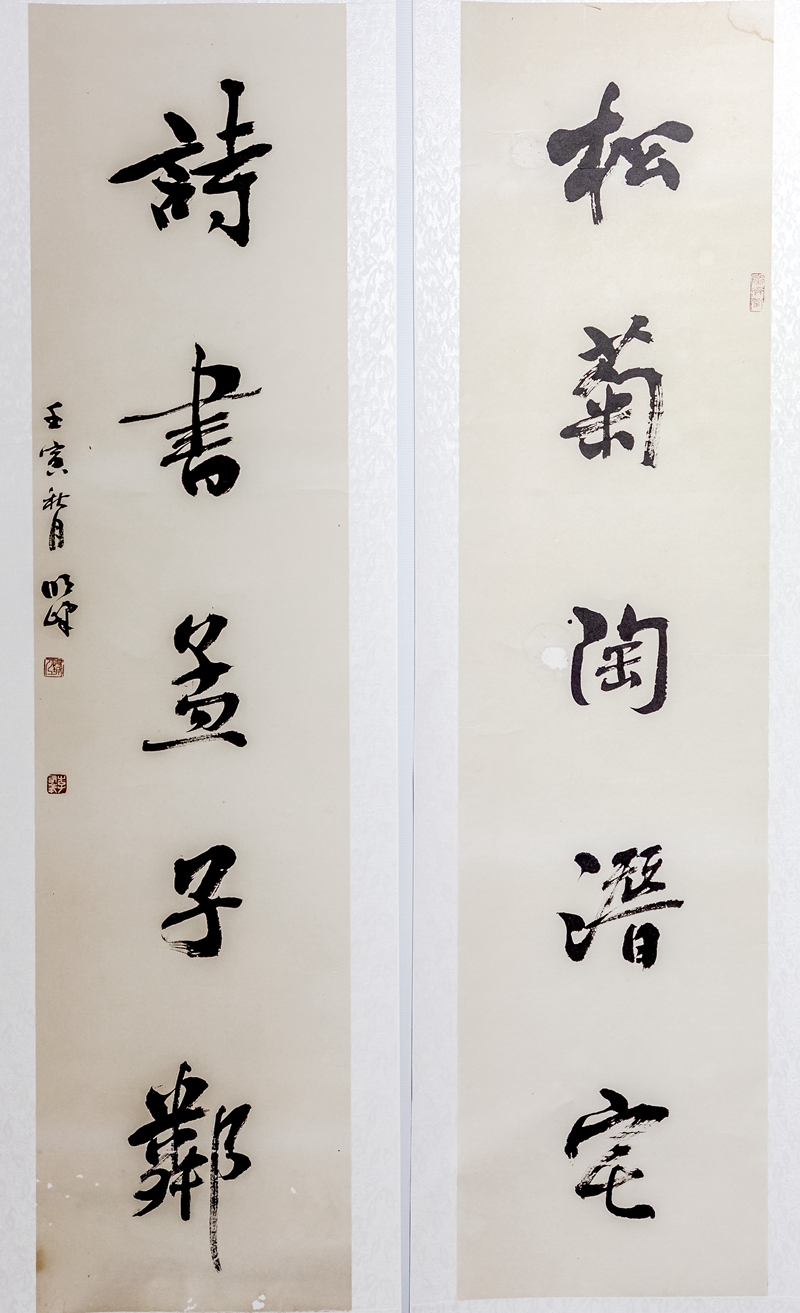 松菊陶潛宅
詩書孟子鄰
壬寅秋月 明峰